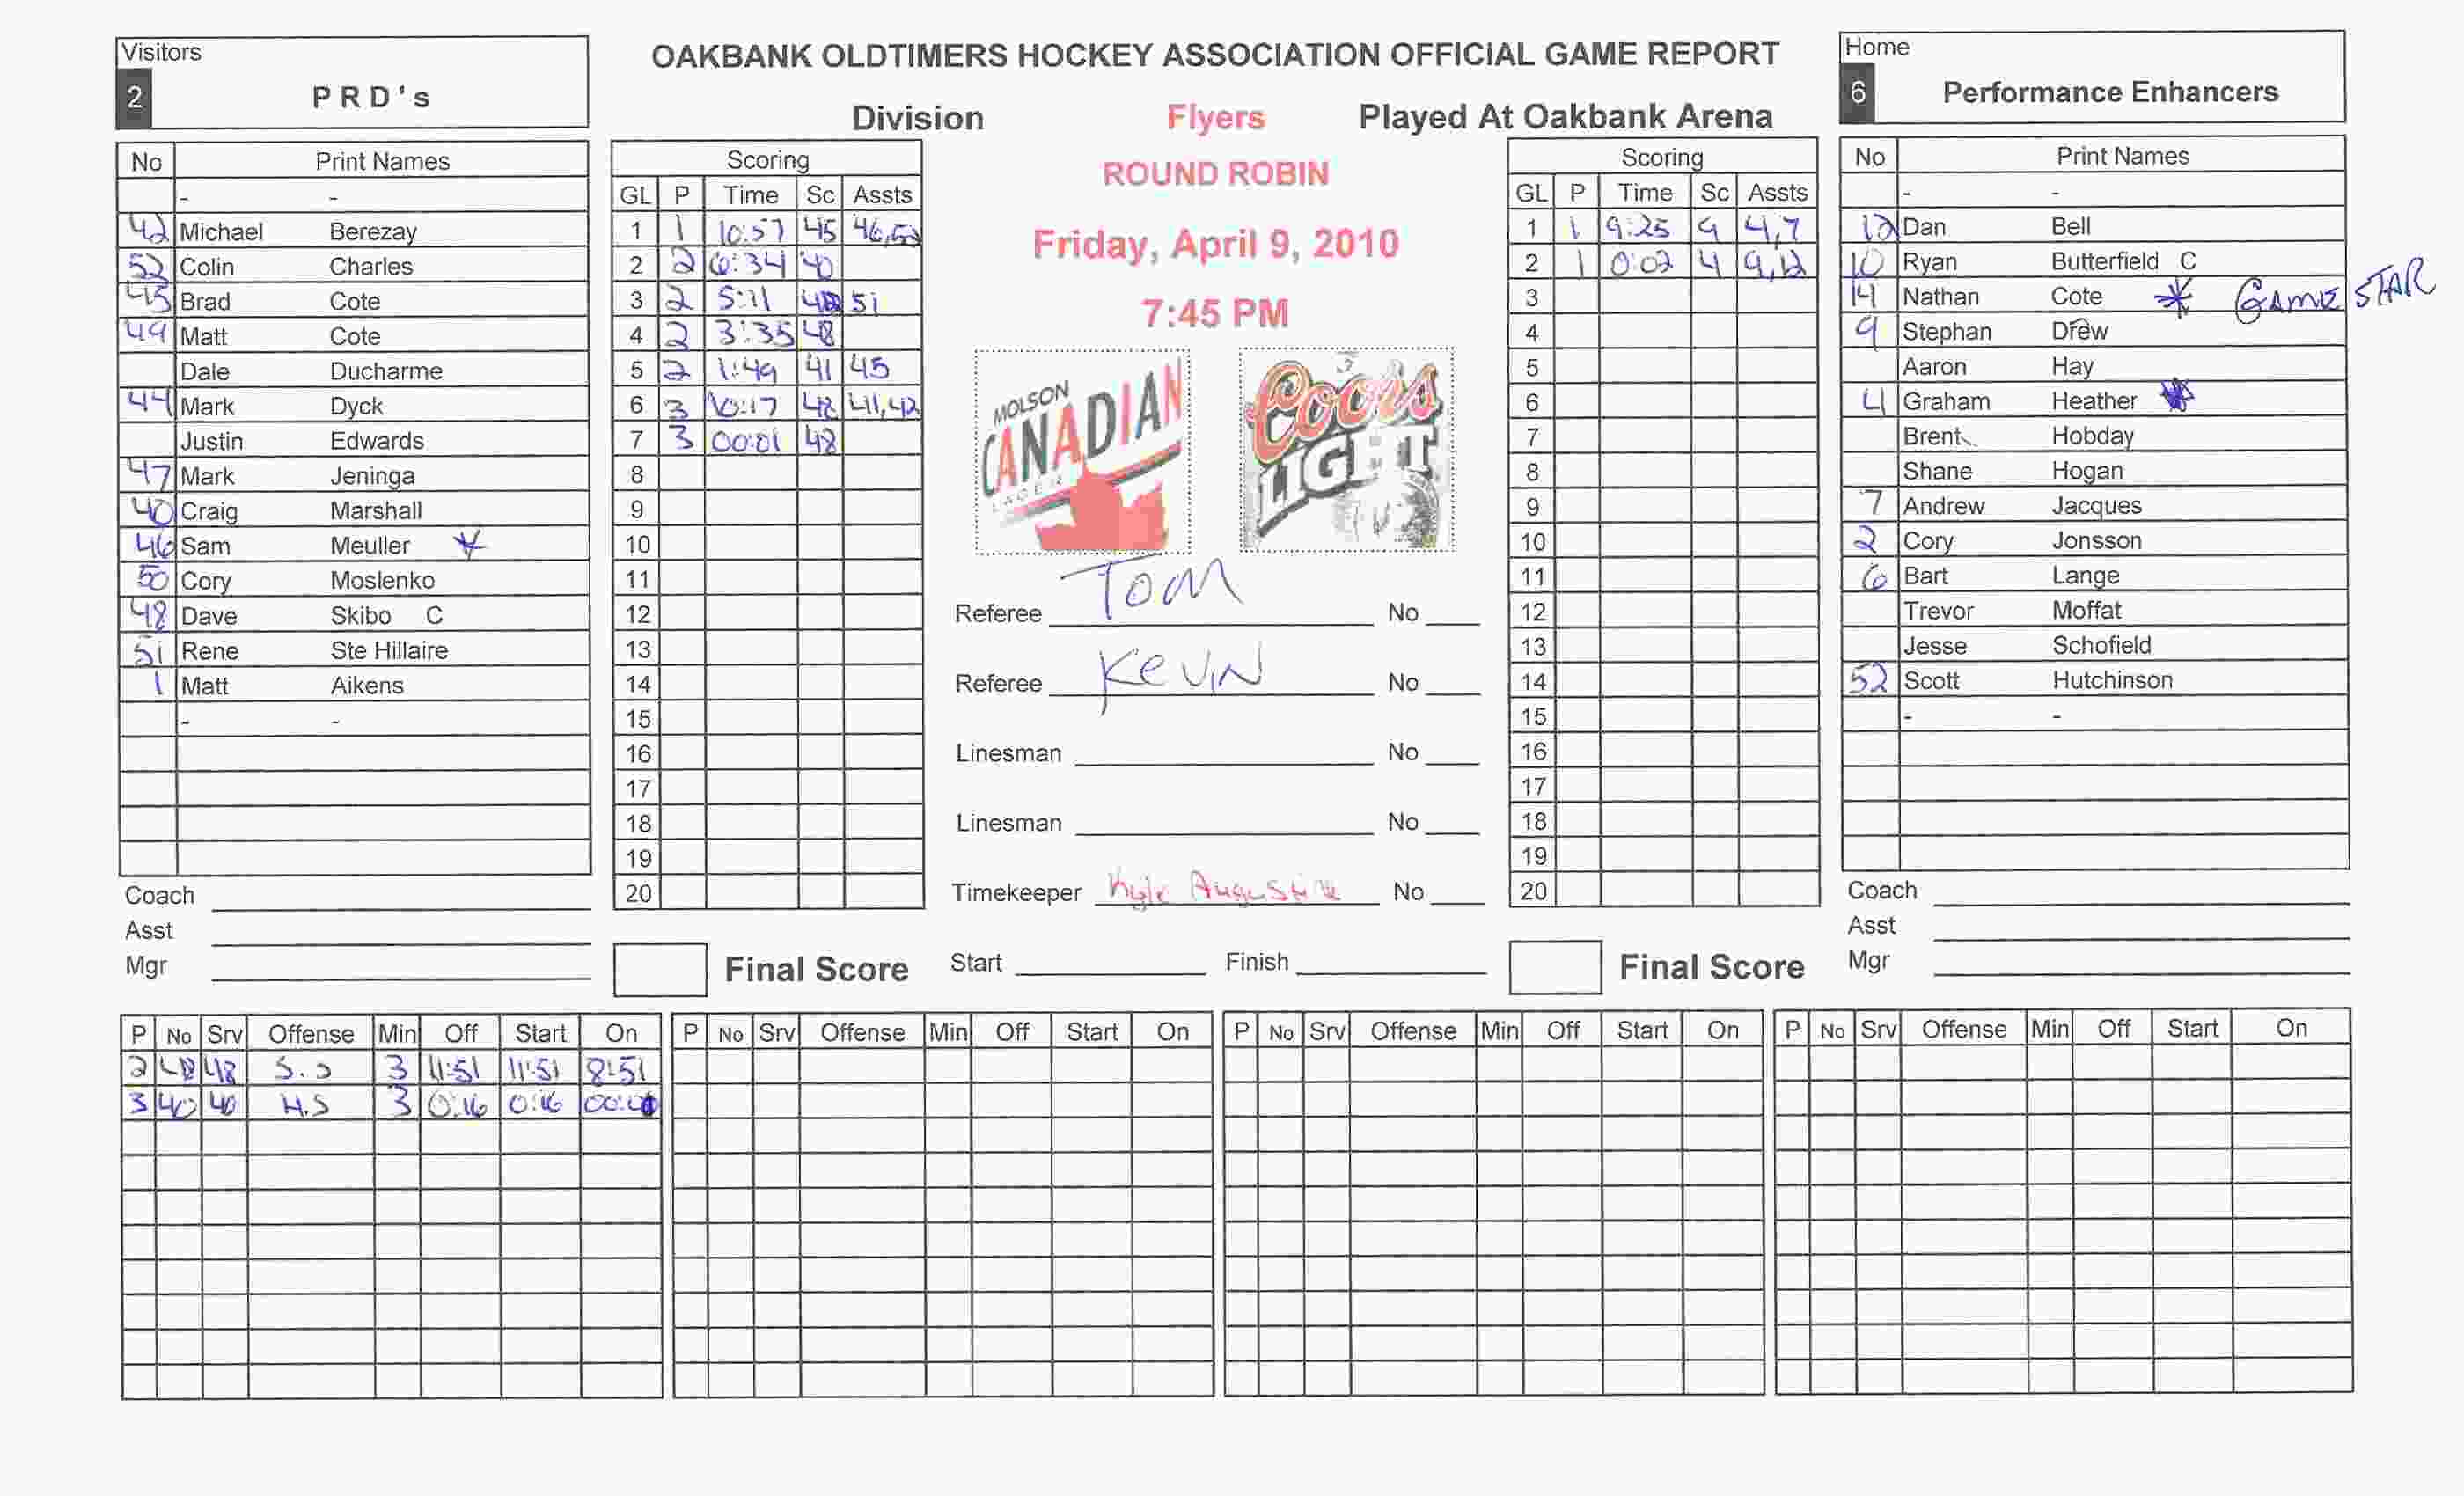 OAKBANK OLDTIMERS HOCKEY ASSOCIATION OFFICIAL GAME REPORT
Division Flyers Played At Oakbank Arena
ROUND ROBIN
Friday, April 9, 2010
7:45 PM
Visitors
2 PRD's
No Print Names
- -
42 Michael Berezay
52 Colin Charles
45 Brad Cote
49 Matt Cote
Dale Ducharme
44 Mark Dyck
Justin Edwards
47 Mark Jeninga
40 Craig Marshall
46 Sam Meuller
50 Cory Moslenko
48 Dave Skibo C
51 Rene Ste Hillaire
1 Matt Aikens
- -
Coach
Asst
Mgr
Scoring
GL P Time Sc Assts
1 1 10:57 45 46,52
2 2 6:34 40
3 2 5:11 51
4 2 3:35 48
5 2 1:49 41 45
6 3 10:17 48 41,42
7 3 00:01 48
8
9
10
11
12
13
14
15
16
17
18
19
20
Final Score
MOLSON
CANADIAN
LAGER
Coors
LIGHT
Referee Tom No
Referee Kevin No
Linesman No
Linesman No
Timekeeper Kyle Augustine No
Start Finish
Scoring
GL P Time Sc Assts
1 1 9:25 9 4,7
2 1 0:02 4 9,12
3
4
5
6
7
8
9
10
11
12
13
14
15
16
17
18
19
20
Final Score
Home
6 Performance Enhancers
No Print Names
- -
12 Dan Bell
10 Ryan Butterfield C
14 Nathan Cote * GAME STAR
9 Stephan Drew
Aaron Hay
4 Graham Heather
Brent Hobday
Shane Hogan
7 Andrew Jacques
2 Cory Jonsson
6 Bart Lange
Trevor Moffat
Jesse Schofield
52 Scott Hutchinson
- -
Coach
Asst
Mgr
P No Srv Offense Min Off Start On
2 48 3 11:51 11:51 8:51
3 40 40 H.S 3 0:16 0:16
P No Srv Offense Min Off Start On
P No Srv Offense Min Off Start On
P No Srv Offense Min Off Start On